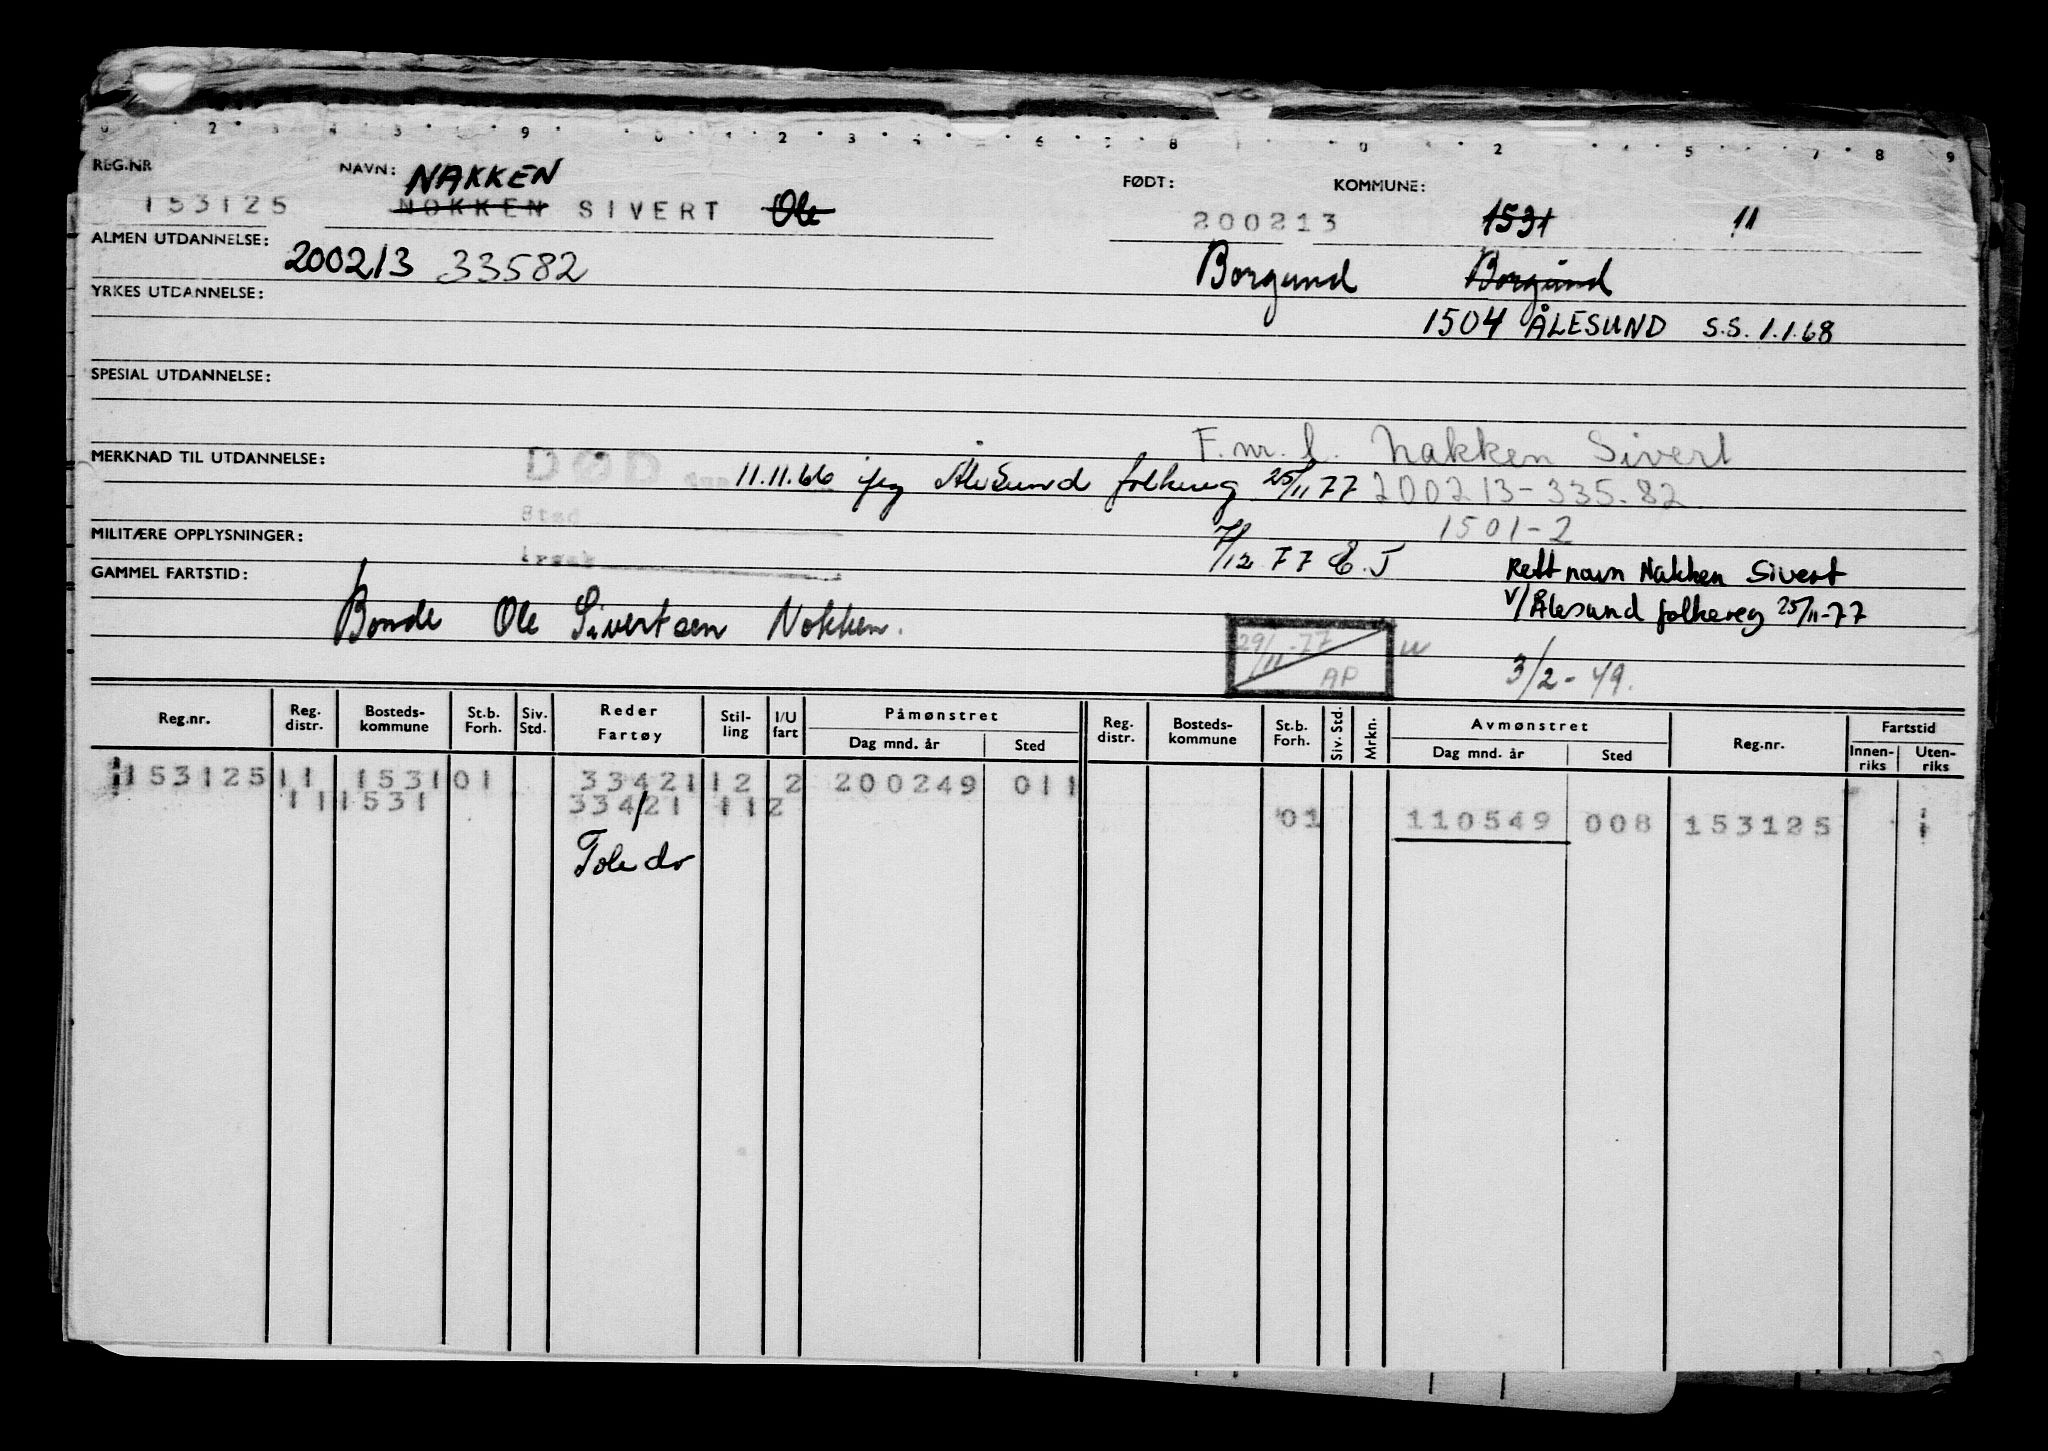 REG.NR NAVN: NAKKEN FØDT: KOMMUNE:
153125 NOKKEN SIVERT Ole 200213 1531 11
ALMEN UTDANNELSE: 200213 33582 Borgund Borgund
YRKES UTDANNELSE:
1504 ÅLESUND S.S. 1.1.68
SPESIAL UTDANNELSE:
F.nr. Nakken Sivert
MERKNAD TIL UTDANNELSE: DØD 11.11.66 Ålesund folkereg 25/11 77 200213-335.82
Sted 1501-2
MILITÆRE OPPLYSNINGER: Årsak 7/12 77 E.J Rett navn Nakken Sivert
GAMMEL FARTSTID: V/Ålesund folkereg 25/11-77
Bonde Ole Sivertsen Nokken.
29/11-77 AP
3/2-49.
Reg.nr. Reg. distr. Bosteds-kommune St.b. Forh. Siv. Std. Reder Fartøy Stil-ling I/U fart Påmønstret Dag mnd. år Sted Reg. distr. Bosteds-kommune St.b. Forh. Siv. Std. Mrkn. Avmønstret Dag mnd. år Sted Reg.nr. Fartstid Innen-riks Uten-riks
153125 11 1531 01 33421 12 2 200249 011
11 1531 33421 11 2 01 110549 008 153125
Toledo